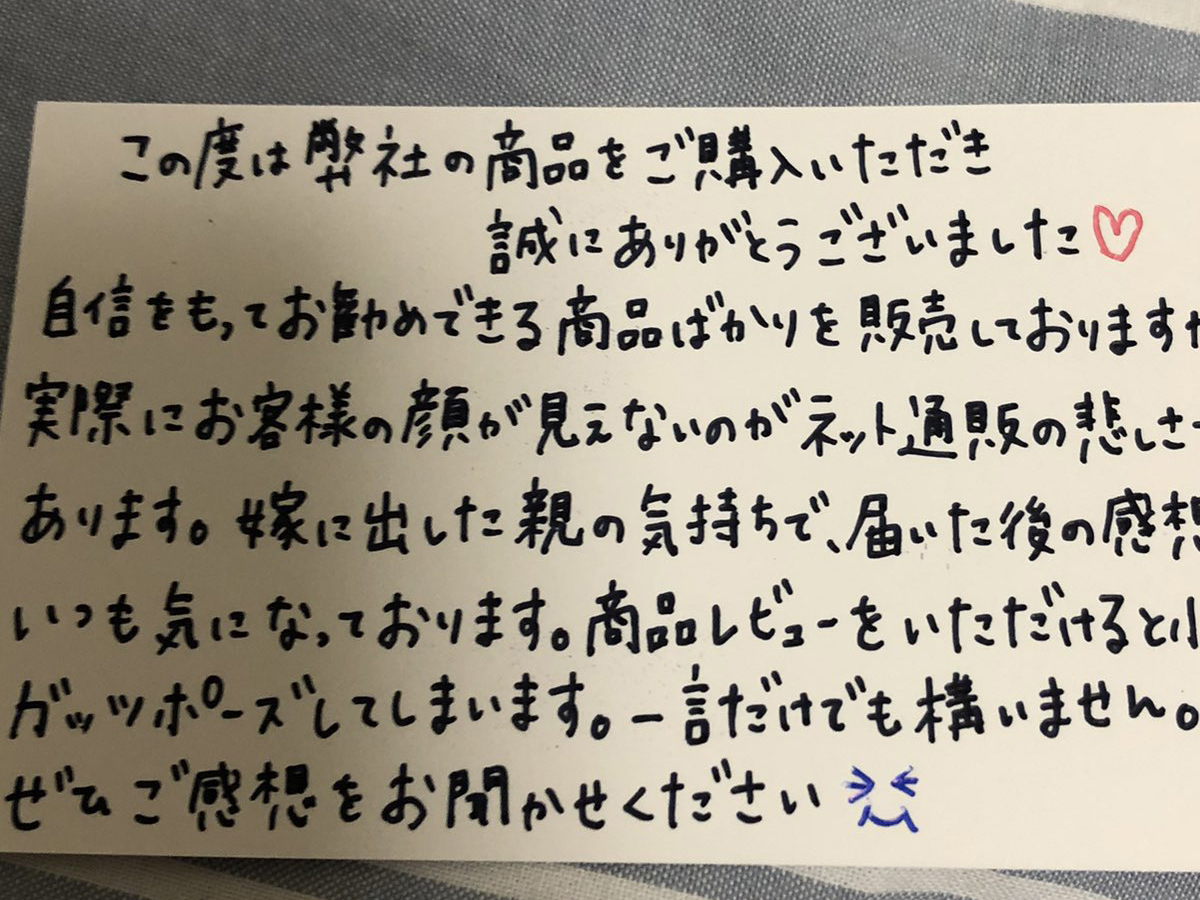 この度は弊社の商品をご購入いただき
誠にありがとうございました♡
自信をもってお勧めできる商品ばかりを販売しております
実際にお客様の顔が見えないのがネット通販の悲しさ
あります。嫁に出した親の気持ちで、届いた後の感想
いつも気になっております。商品レビューをいただけると小
ガッツポーズしてしまいます。一言だけでも構いません。
ぜひご感想をお聞かせください